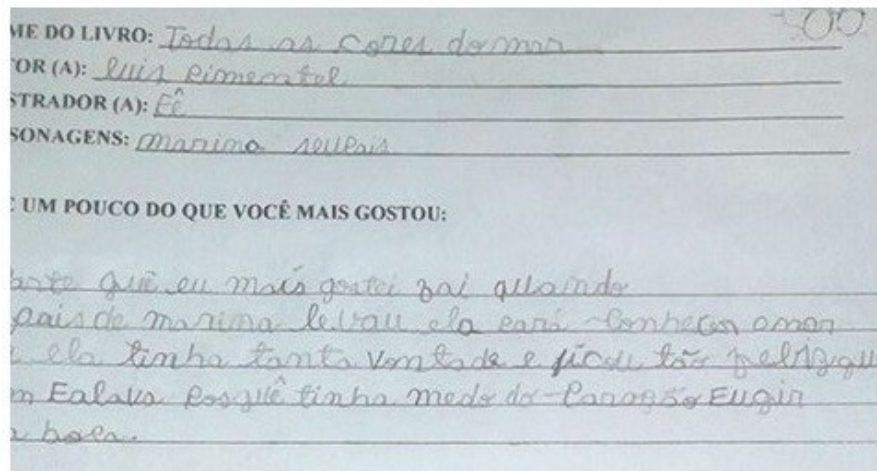 ME DO LIVRO: Todas as cores do mar
OR (A): Luis Pimentel
STRADOR (A): Eê
SONAGENS: marina seupais
UM POUCO DO QUE VOCÊ MAIS GOSTOU:
quê eu mais gostei foi quando
pais de marina levau ela para conhecer o mar
ela tinha tanta vontade e ficou tão feliz qu
m Ealava Porquê tinha medo do coração Eugir
boca.